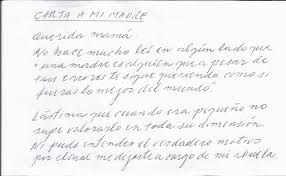 CARTA A MI MADRE
Querida mamá:
No hace mucho leí en algún lado que
"una madre es alguien que a pesar de
tus errores te sigue queriendo como si
fueras lo mejor del mundo".
Lástima que cuando era pequeño no
supe valorarlo en toda su dimensión.
Ni pude entender el verdadero motivo
por el cual me dejaste a cargo de mi abuela.